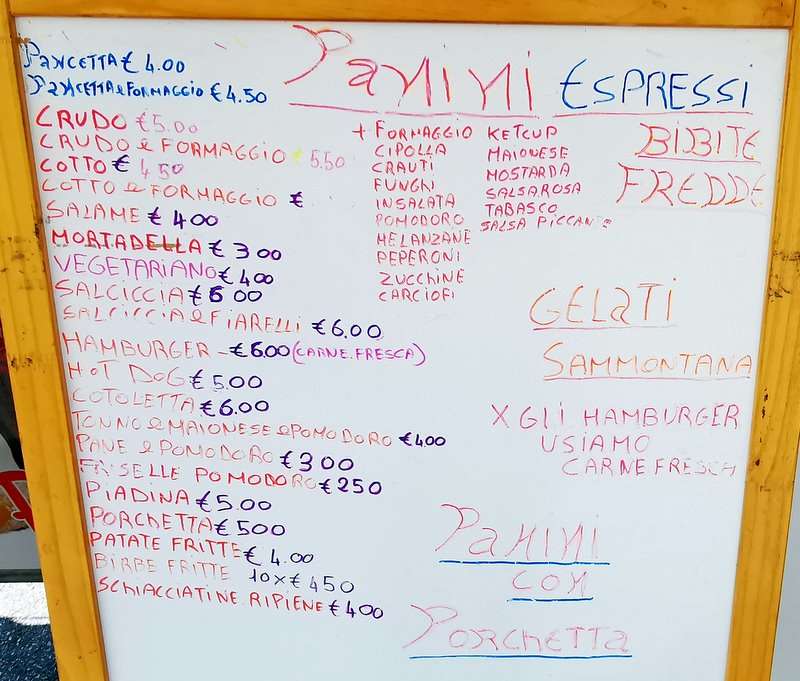 PANCETTA € 4.00
PANCETTA e FORMAGGIO € 4.50
CRUDO € 5.00
CRUDO e FORMAGGIO € 5.50
COTTO € 4.50
COTTO e FORMAGGIO €
SALAME € 4.00
MORTADELLA € 3.00
VEGETARIANO € 4.00
SALCICCIA € 6.00
SALCICCIA e FIARELLI € 6.00
HAMBURGER - € 6.00 (CARNE.FRESCA)
HOT DOG € 5.00
COTOLETTA € 6.00
TONNO e MAIONESE e POMODORO € 400
PANE e POMODORO € 300
FRISELLE POMODORO € 250
PIADINA € 5.00
PORCHETTA € 500
PATATE FRITTE € 4.00
BIRBE FRITTE 10 x € 450
SCHIACCIATINE RIPIENE € 400
PANINI ESPRESSI
+ FORMAGGIO
CIPOLLA
CRAUTI
FUNGHI
INSALATA
POMODORO
MELANZANE
PEPERONI
ZUCCHINE
CARCIOFI
KETCUP
MAIONESE
MOSTARDA
SALSA ROSA
TABASCO
SALSA PICCANTE
BIBITE
FREDDE
GELATI
SAMMONTANA
X GLI HAMBURGER
USIAMO
CARNE FRESCA
PANINI
CON
PORCHETTA